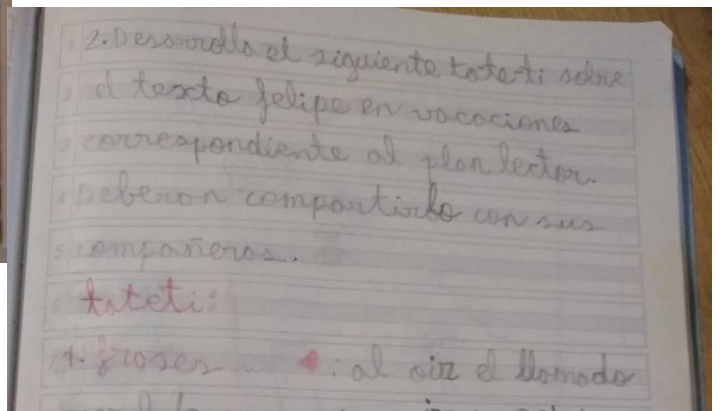 2. Desarrolla el siguiente tateti sobre
el texto felipe en vacaciones
correspondiente al plan lector.
Deberan compartirlo con sus
compañeros.
tateti:
1. frases : al oir el llamado